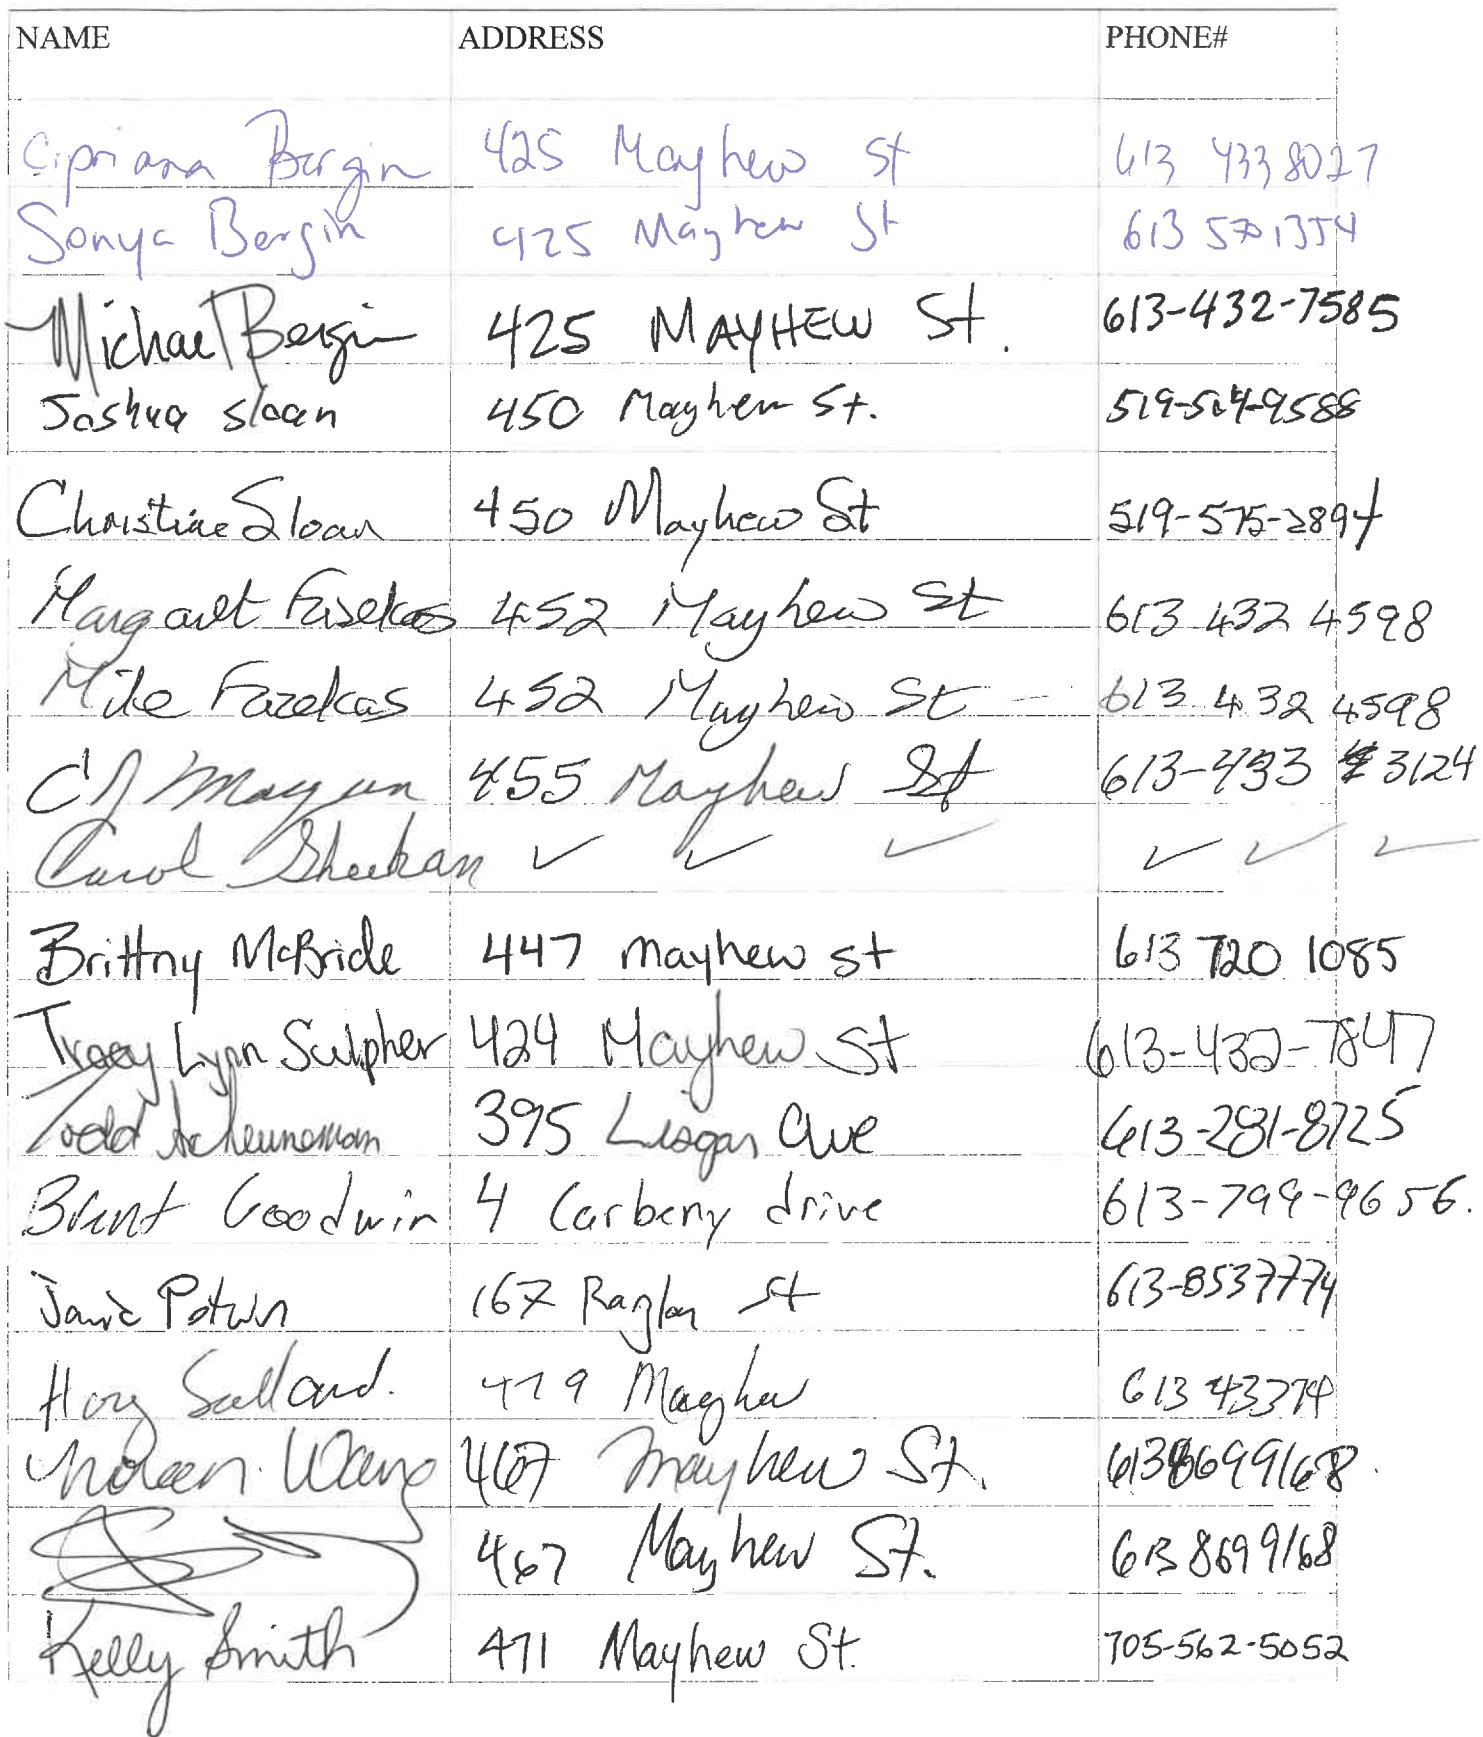 NAME ADDRESS PHONE#
Cipriana Bergin 425 Mayhew St 613 433 8027
Sonya Bergin 425 Mayhew St 613 570 1354
Michael Bergin 425 MAYHEW St. 613-432-7585
Joshua Sloan 450 Mayhew St. 519-504-9588
Christine Sloan 450 Mayhew St 519-575-2894
Margaret Fazekas 452 Mayhew St 613 432 4598
Mike Fazekas 452 Mayhew St 613 432 4598
CJ 455 Mayhew St 613-433 3124
Carol Sheehan ✓ ✓ ✓ ✓ ✓ ✓
Brittny McBride 447 mayhew st 613 720 1085
Tracey Lynn Sulpher 424 Mayhew St 613-432-7847
Todd Scheuneman 395 Lisgar Ave 613-281-8725
Brent Goodwin 4 Carbeny drive 613-799-9656.
167 Raglan St 613-8537774
479 Mayhew 613
Noreen 467 Mayhew St. 6138699168
467 Mayhew St. 613 869 9168
Kelly Smith 471 Mayhew St. 705-562-5052